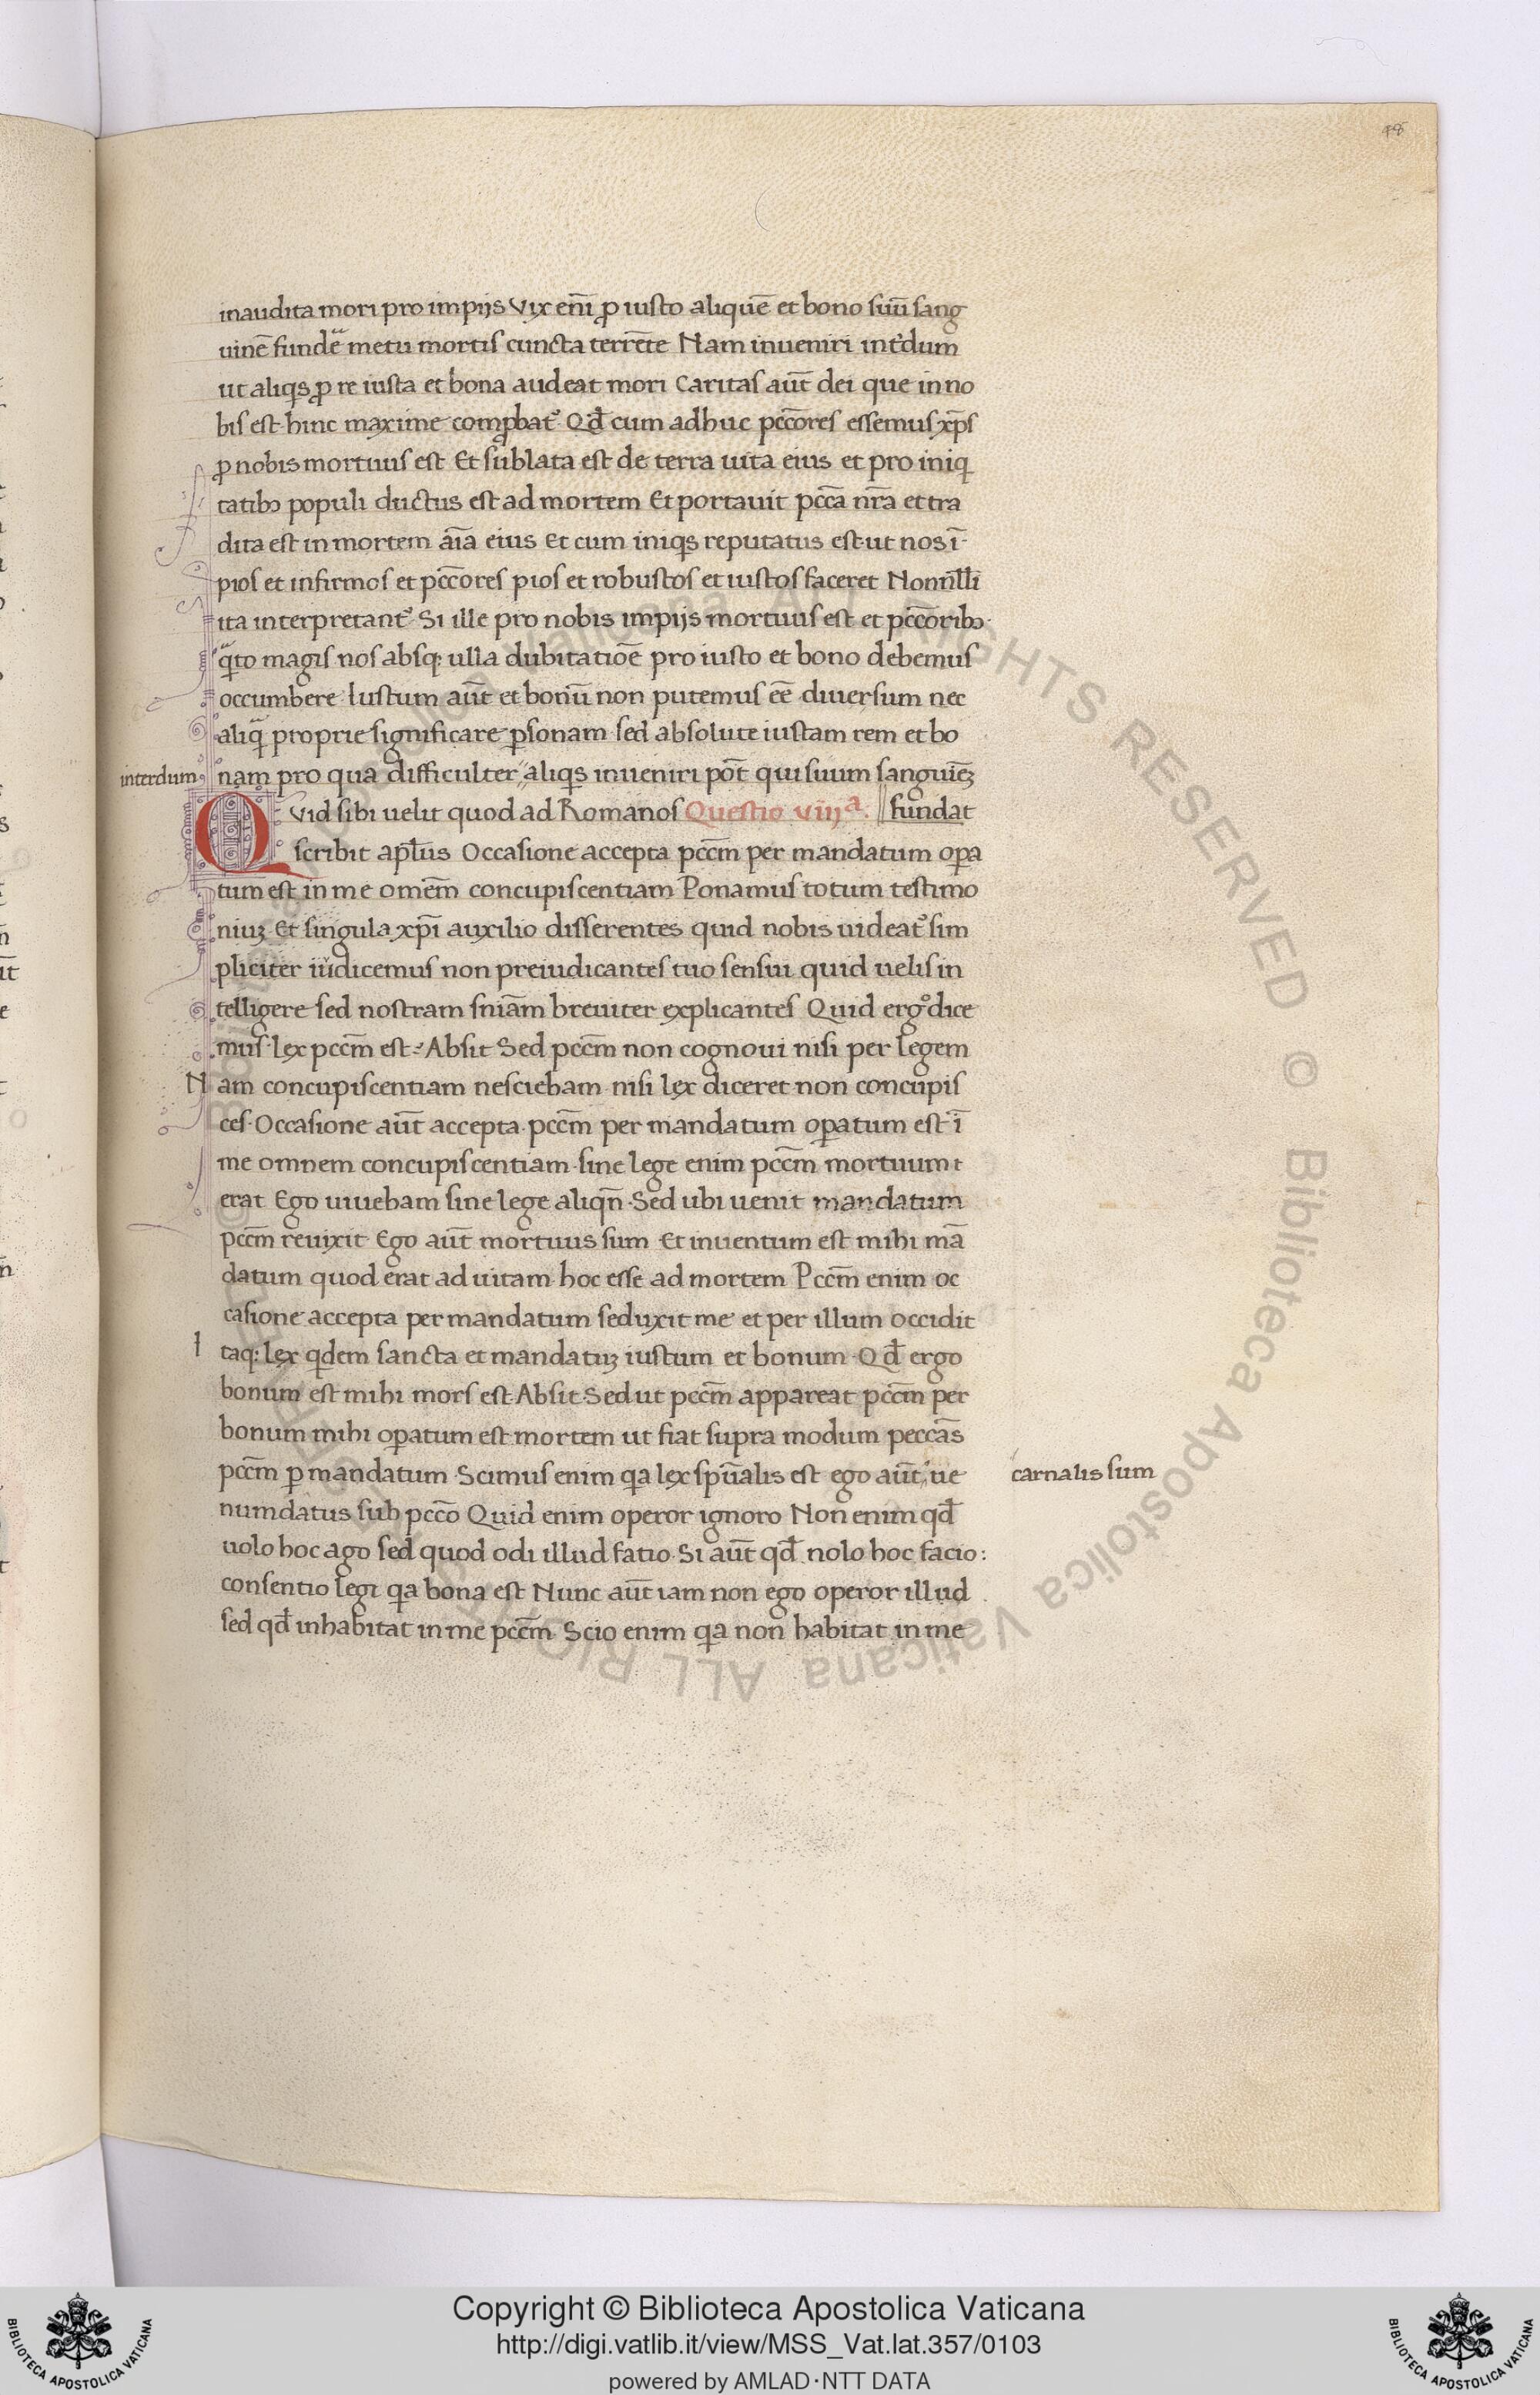 48
inaudita mori pro impijs Vix eni̅ ꝓ iusto alique̅ et bono suu̅ sang
uine̅ funde̅ metu mortis cuncta terre̅te Nam inueniri int͛dum
ut aliqͥs ꝓ re iusta et bona audeat mori Caritas aut̅ dei que in no
bis est hinc maxime comꝓbat᷑ Qd̅ cum adhuc pcc̅ores essemus xp̅s
ꝓ nobis mortuus est Et sublata est de terra uita eius et pro iniqͥ
tatibꝫ populi ductus est ad mortem Et portauit pcc̅a nr̅a et tra
dita est in mortem ai̅a eius Et cum iniqͥs reputatus est ut nos i̅
pios et infirmos et pcc̅ores pios et robustos et iustos faceret Nonnll̅i
ita interpretant᷑ Si ille pro nobis impijs mortuus est et pcc̅oribꝫ
qͣto magis nos absqꝫ ulla dubitatio̅e pro iusto et bono debemus
occumbere Iustum aut̅ et bonu̅ non putemus ee̅ diuersum nec
aliqͣ proprie significare ꝑsonam sed absolute iustam rem et bo
interdum
nam pro qua difficulter aliqͥs inueniri pot̅ qui suum sanguine̅
Quid sibi uelit quod ad Romanos Questio viijᵃ. fundat
scribit apl̅us Occasione accepta pcc̅m per mandatum oꝑa
tum est in me ome̅m concupiscentiam Ponamus totum testimo
niuꝫ Et singula xp̅i auxilio disserentes quid nobis uideat᷑ sim
pliciter iudicemus non preiudicantes tuo sensui quid uelis in
telligere sed nostram sn̅iam breuiter explicantes Quid ergo dice
mus lex pcc̅m est Absit Sed pcc̅m non cognoui nisi per legem
Nam concupiscentiam nesciebam nisi lex diceret non concupis
ces Occasione aut̅ accepta pcc̅m per mandatum oꝑatum est i̅
me omnem concupiscentiam sine lege enim pcc̅m mortuum
erat Ego uiuebam sine lege aliqn̅ Sed ubi uenit mandatum
pcc̅m reuixit Ego aut̅ mortuus sum Et inuentum est mihi ma̅
datum quod erat ad uitam hoc esse ad mortem Pcc̅m enim oc
casione accepta per mandatum seduxit me et per illum occidit
Itaqꝫ lex qͥdem sancta et mandatuꝫ iustum et bonum Qd̅ ergo
bonum est mihi mors est Absit Sed ut pcc̅m appareat pcc̅m per
bonum mihi oꝑatum est mortem ut fiat supra modum pecca̅s
pcc̅m ꝑ mandatum Scimus enim qͥa lex spu̅alis est ego aut̅ ue
carnalis sum
numdatus sub pcc̅o Quid enim operor ignoro Non enim qd̅
uolo hoc ago sed quod odi illud fatio Si aut̅ qd̅ nolo hoc facio:
consentio legi qͥa bona est Nunc aut̅ iam non ego operor illud
sed qd̅ inhabitat in me pcc̅m Scio enim qͥa non habitat in me
© Biblioteca Apostolica Vaticana ALL RIGHTS RESERVED
BIBLIOTECA APOSTOLICA VATICANA
Copyright © Biblioteca Apostolica Vaticana
http://digi.vatlib.it/view/MSS_Vat.lat.357/0103
powered by AMLAD·NTT DATA
BIBLIOTECA APOSTOLICA VATICANA